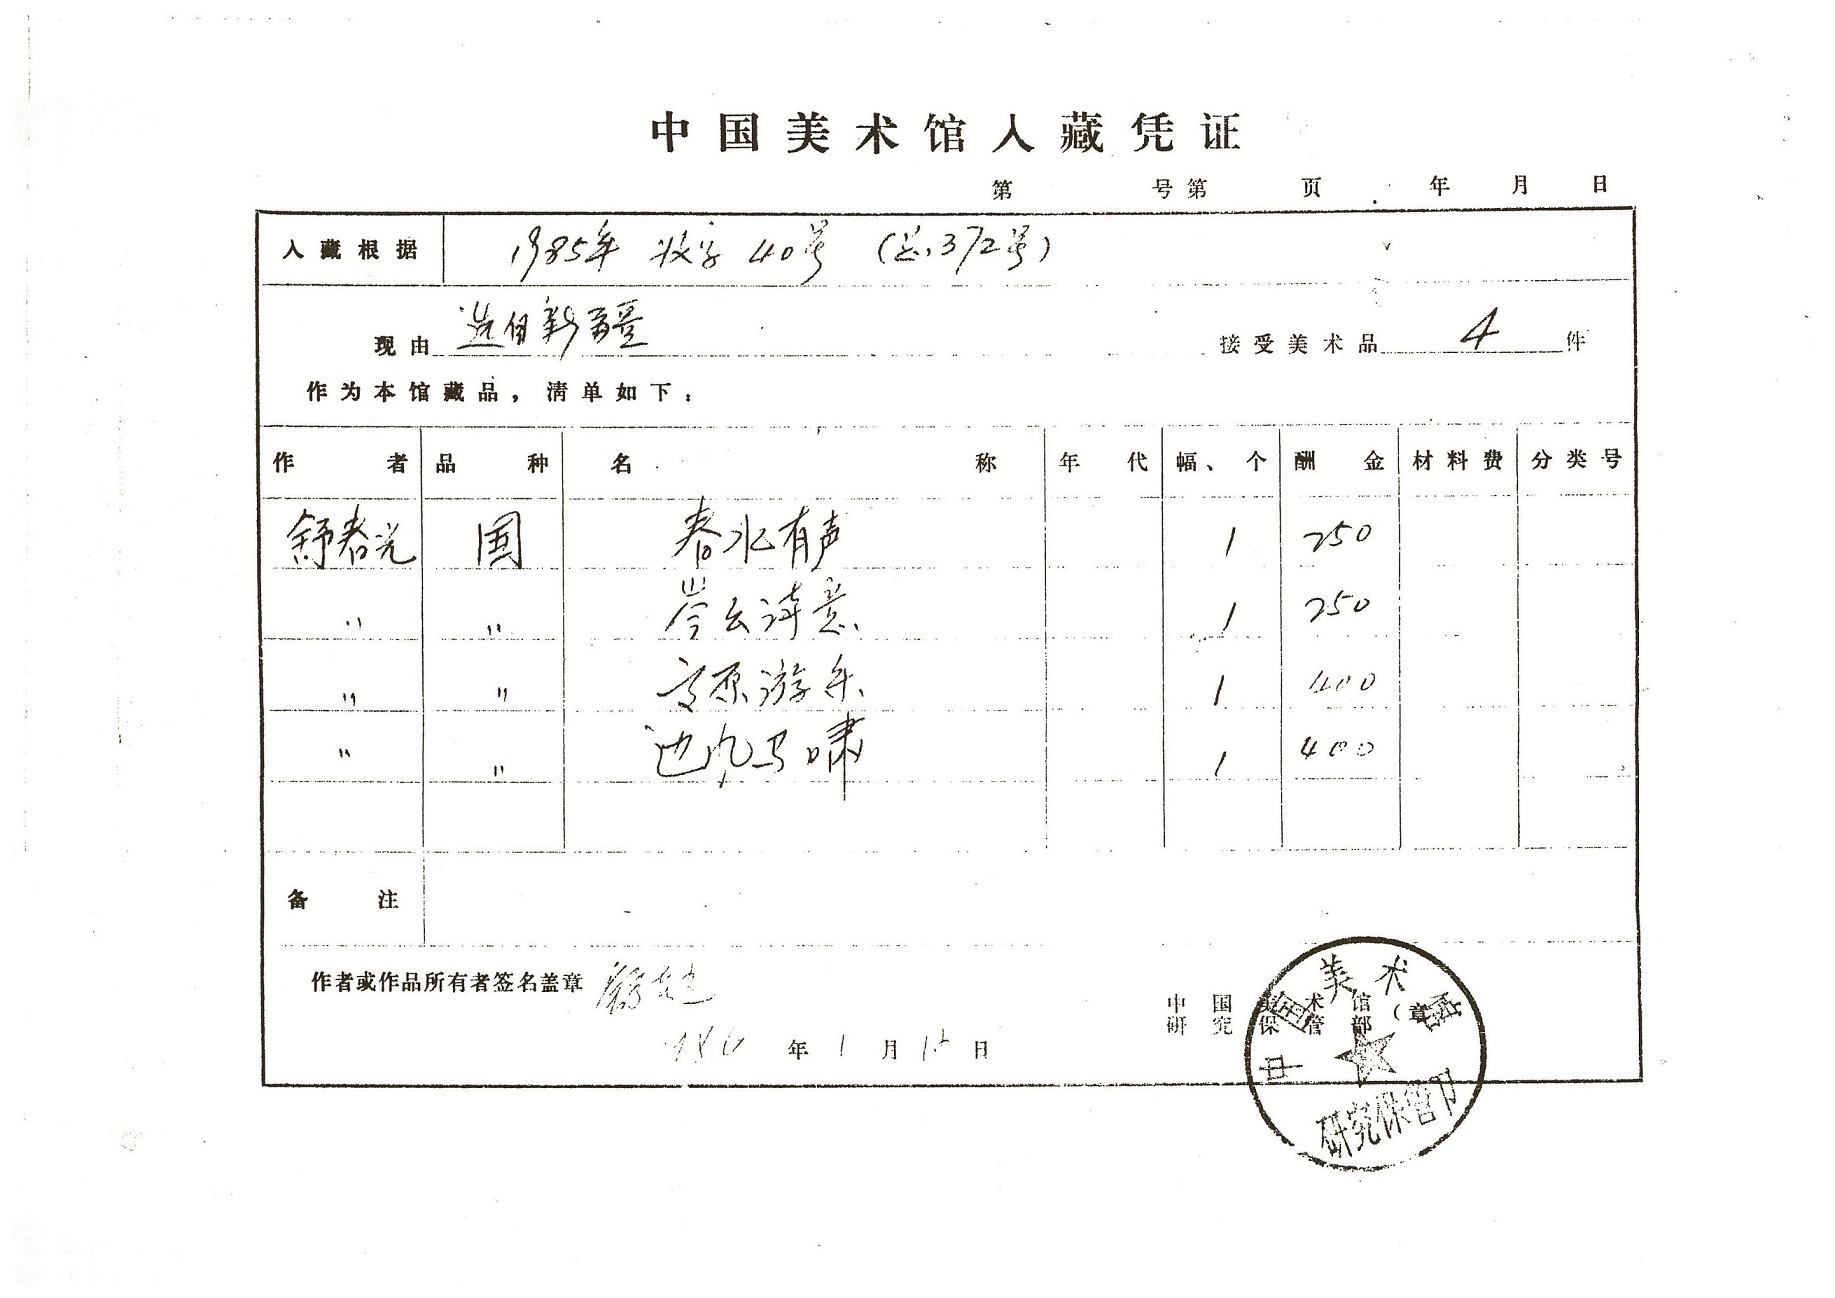 中国美术馆入藏凭证
第 号第 页 年 月 日
入藏根据 1985年 收字 40号 (总372号)
现由 选自新疆 接受美术品 4 件
作为本馆藏品，清单如下：
作者 品种 名称 年代 幅、个 酬金 材料费 分类号
舒春光 国 春水有声 1 250
〃 〃 岑公诗意 1 250
〃 〃 高原游乐 1 400
〃 〃 边风马啸 1 400
备注
作者或作品所有者签名盖章
中国美术馆
研究保管部（章
年 1 月 日
中国美术馆
研究保管部